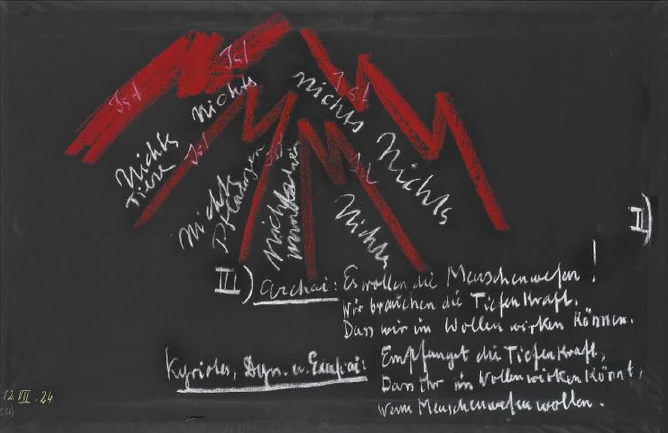 Ist
Ist
Ist
Nichts
Nichts
Nichts
Tiere
Ist
Nichts
Pflanzen
Nichts
Nichts
Nichts
II)
III) Archai: Es wollen die Menschenwesen!
Wir brauchen die Tiefenkraft,
Dass wir im Wollen wirken können.
Kyriotet, Dyn. u. Exusiai: Empfanget die Tiefenkraft,
Dass ihr im Wollen wirken könnt,
wenn Menschenwesen wollen.
12 VII. 24